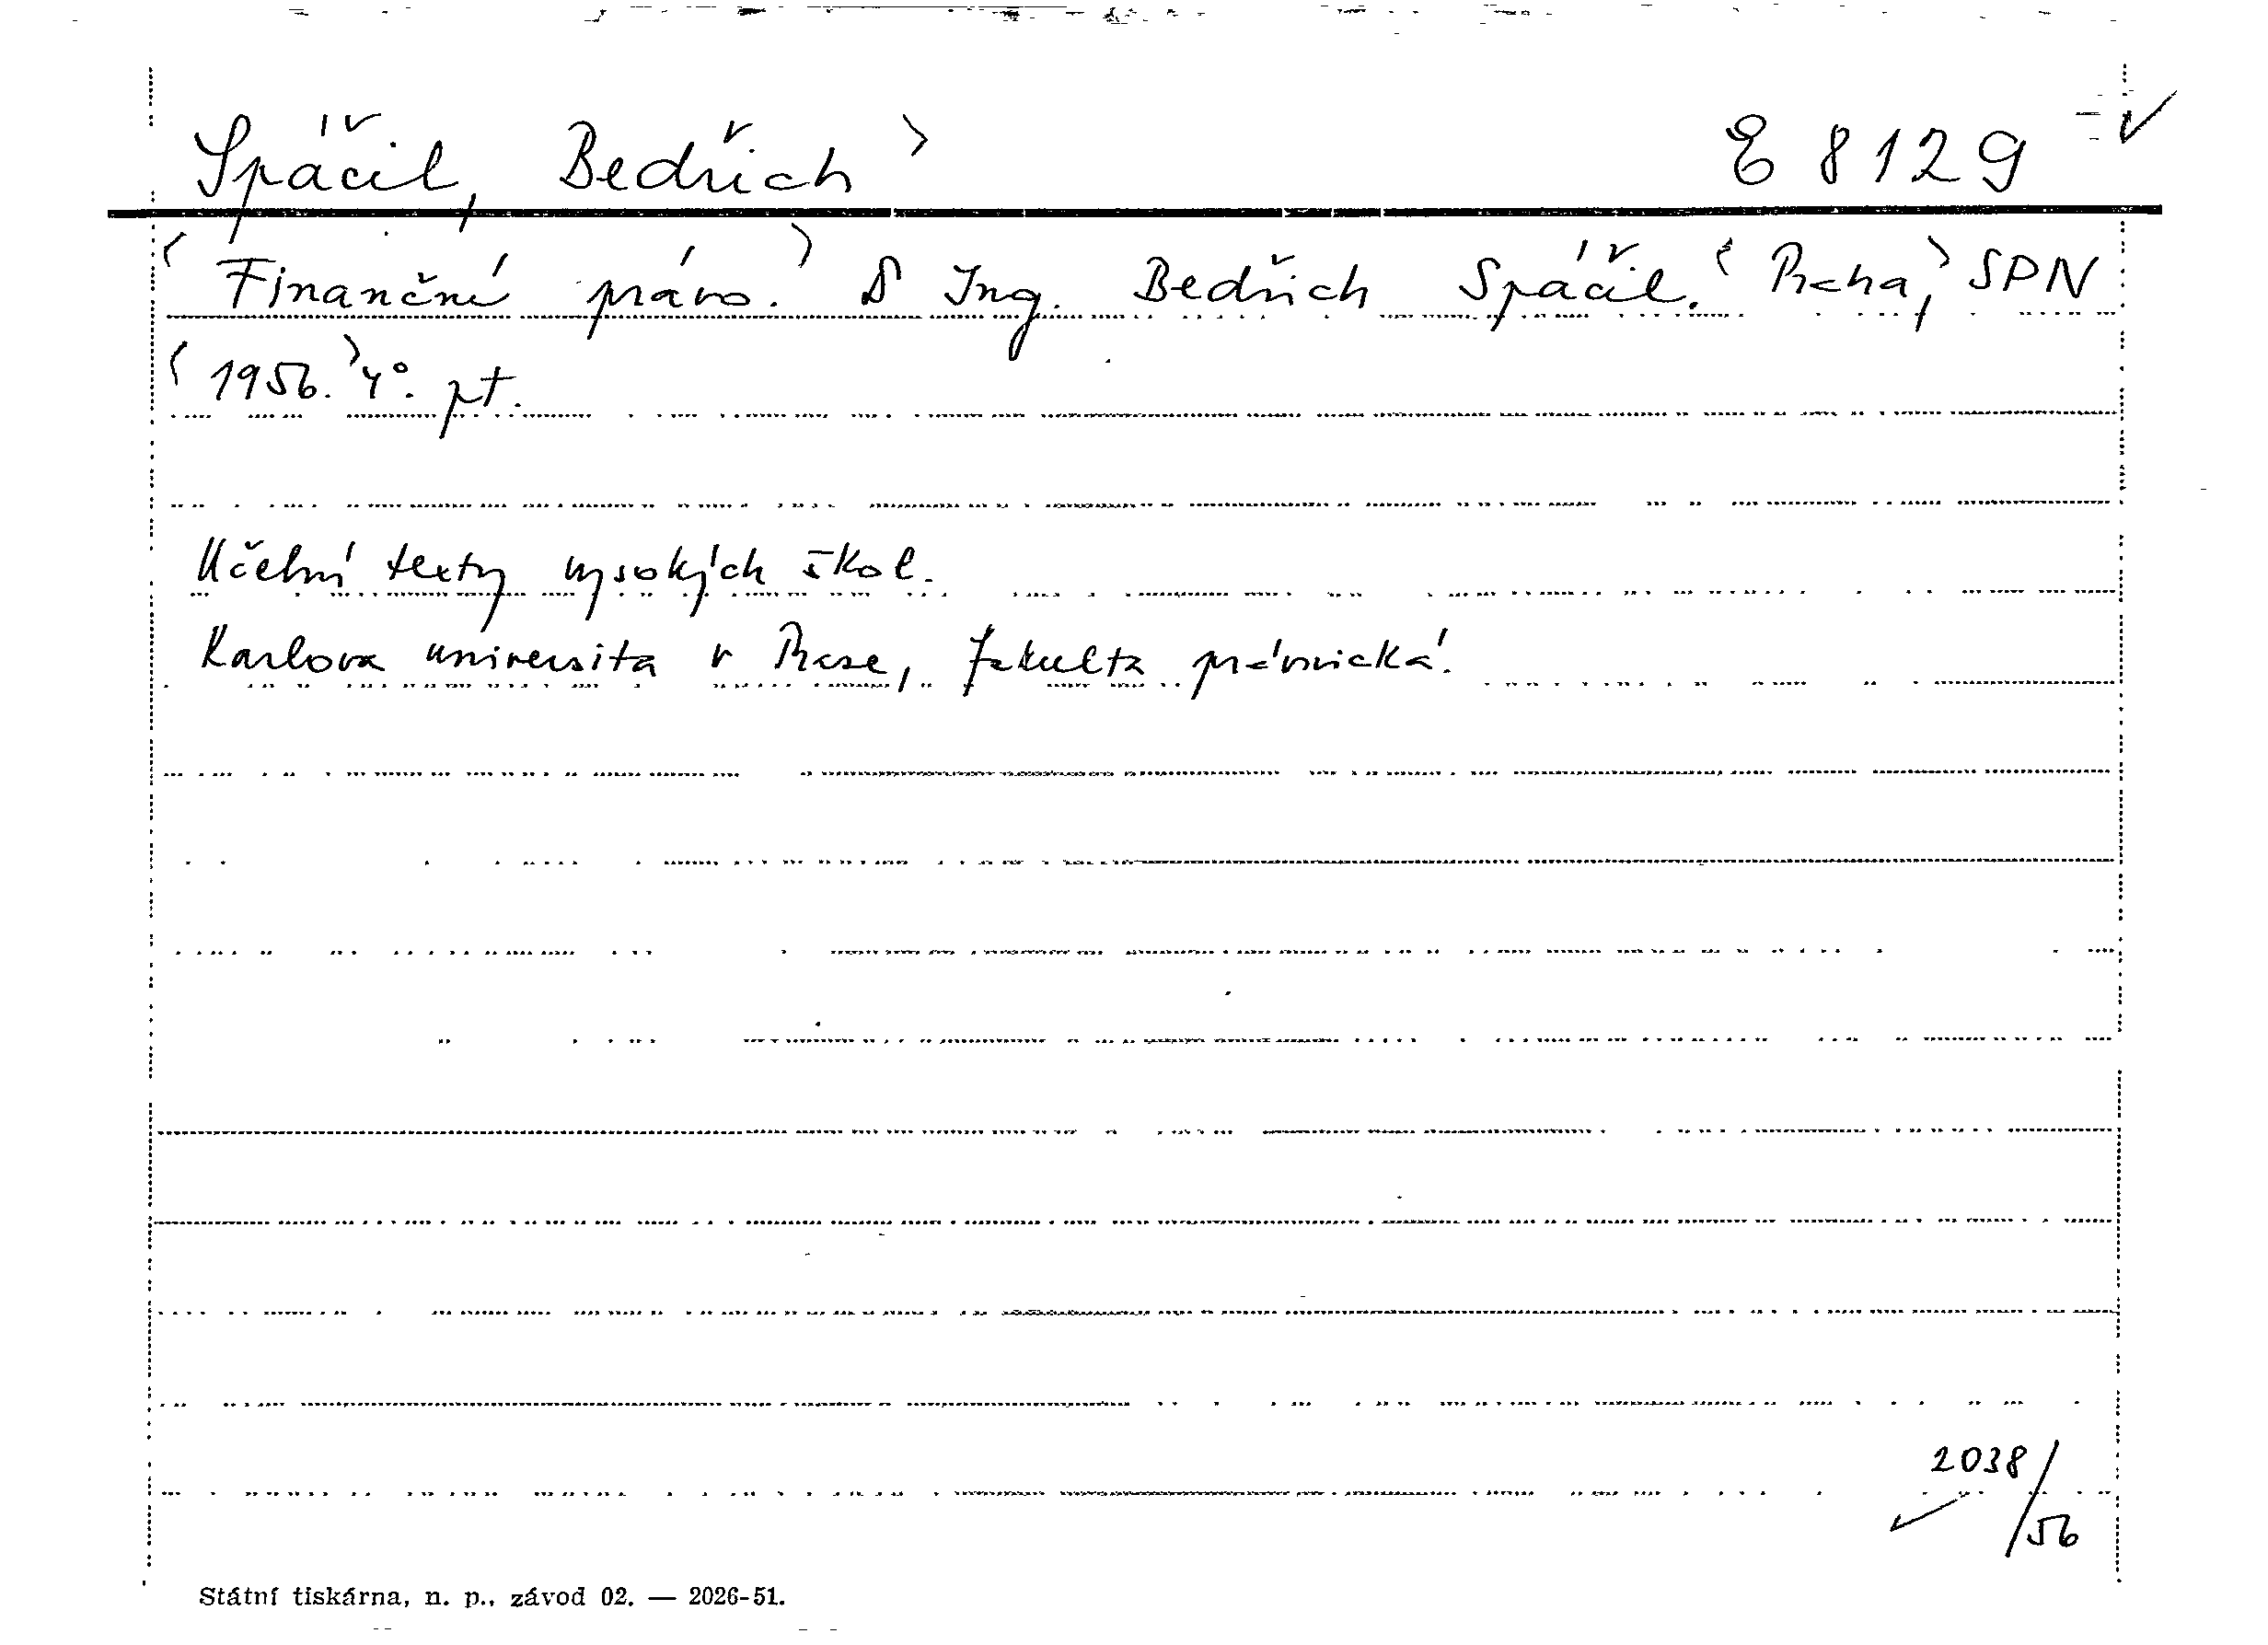 Spáčil, Bedřich〉 E 8129
〈Finanční právo.〉 D Ing. Bedřich Spáčil. 〈Praha,〉 SPN
〈1956.〉 4°. pt.
Učební texty vysokých škol.
Karlova universita v Praze, fakulta právnická.
2038/56
Státní tiskárna, n. p., závod 02. — 2026-51.